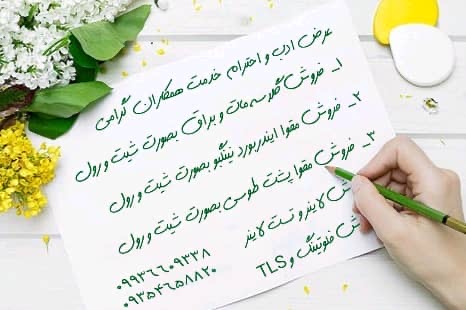 عرض ادب و احترام خدمت همکاران گرامی
۱_ فروش گلاسه مات و براق بصورت شیت و رول
۲_ فروش مقوا ایندربورد نینگبو بصورت شیت و رول
۳_ فروش مقوا پشت طوسی بصورت شیت و رول
ش لاینر و تست لاینر
ش فلوتینگ و TLS
۰۹۹۳۶۶۰۹۳۳۸
۰۹۳۵۴۶۵۸۸۲۰